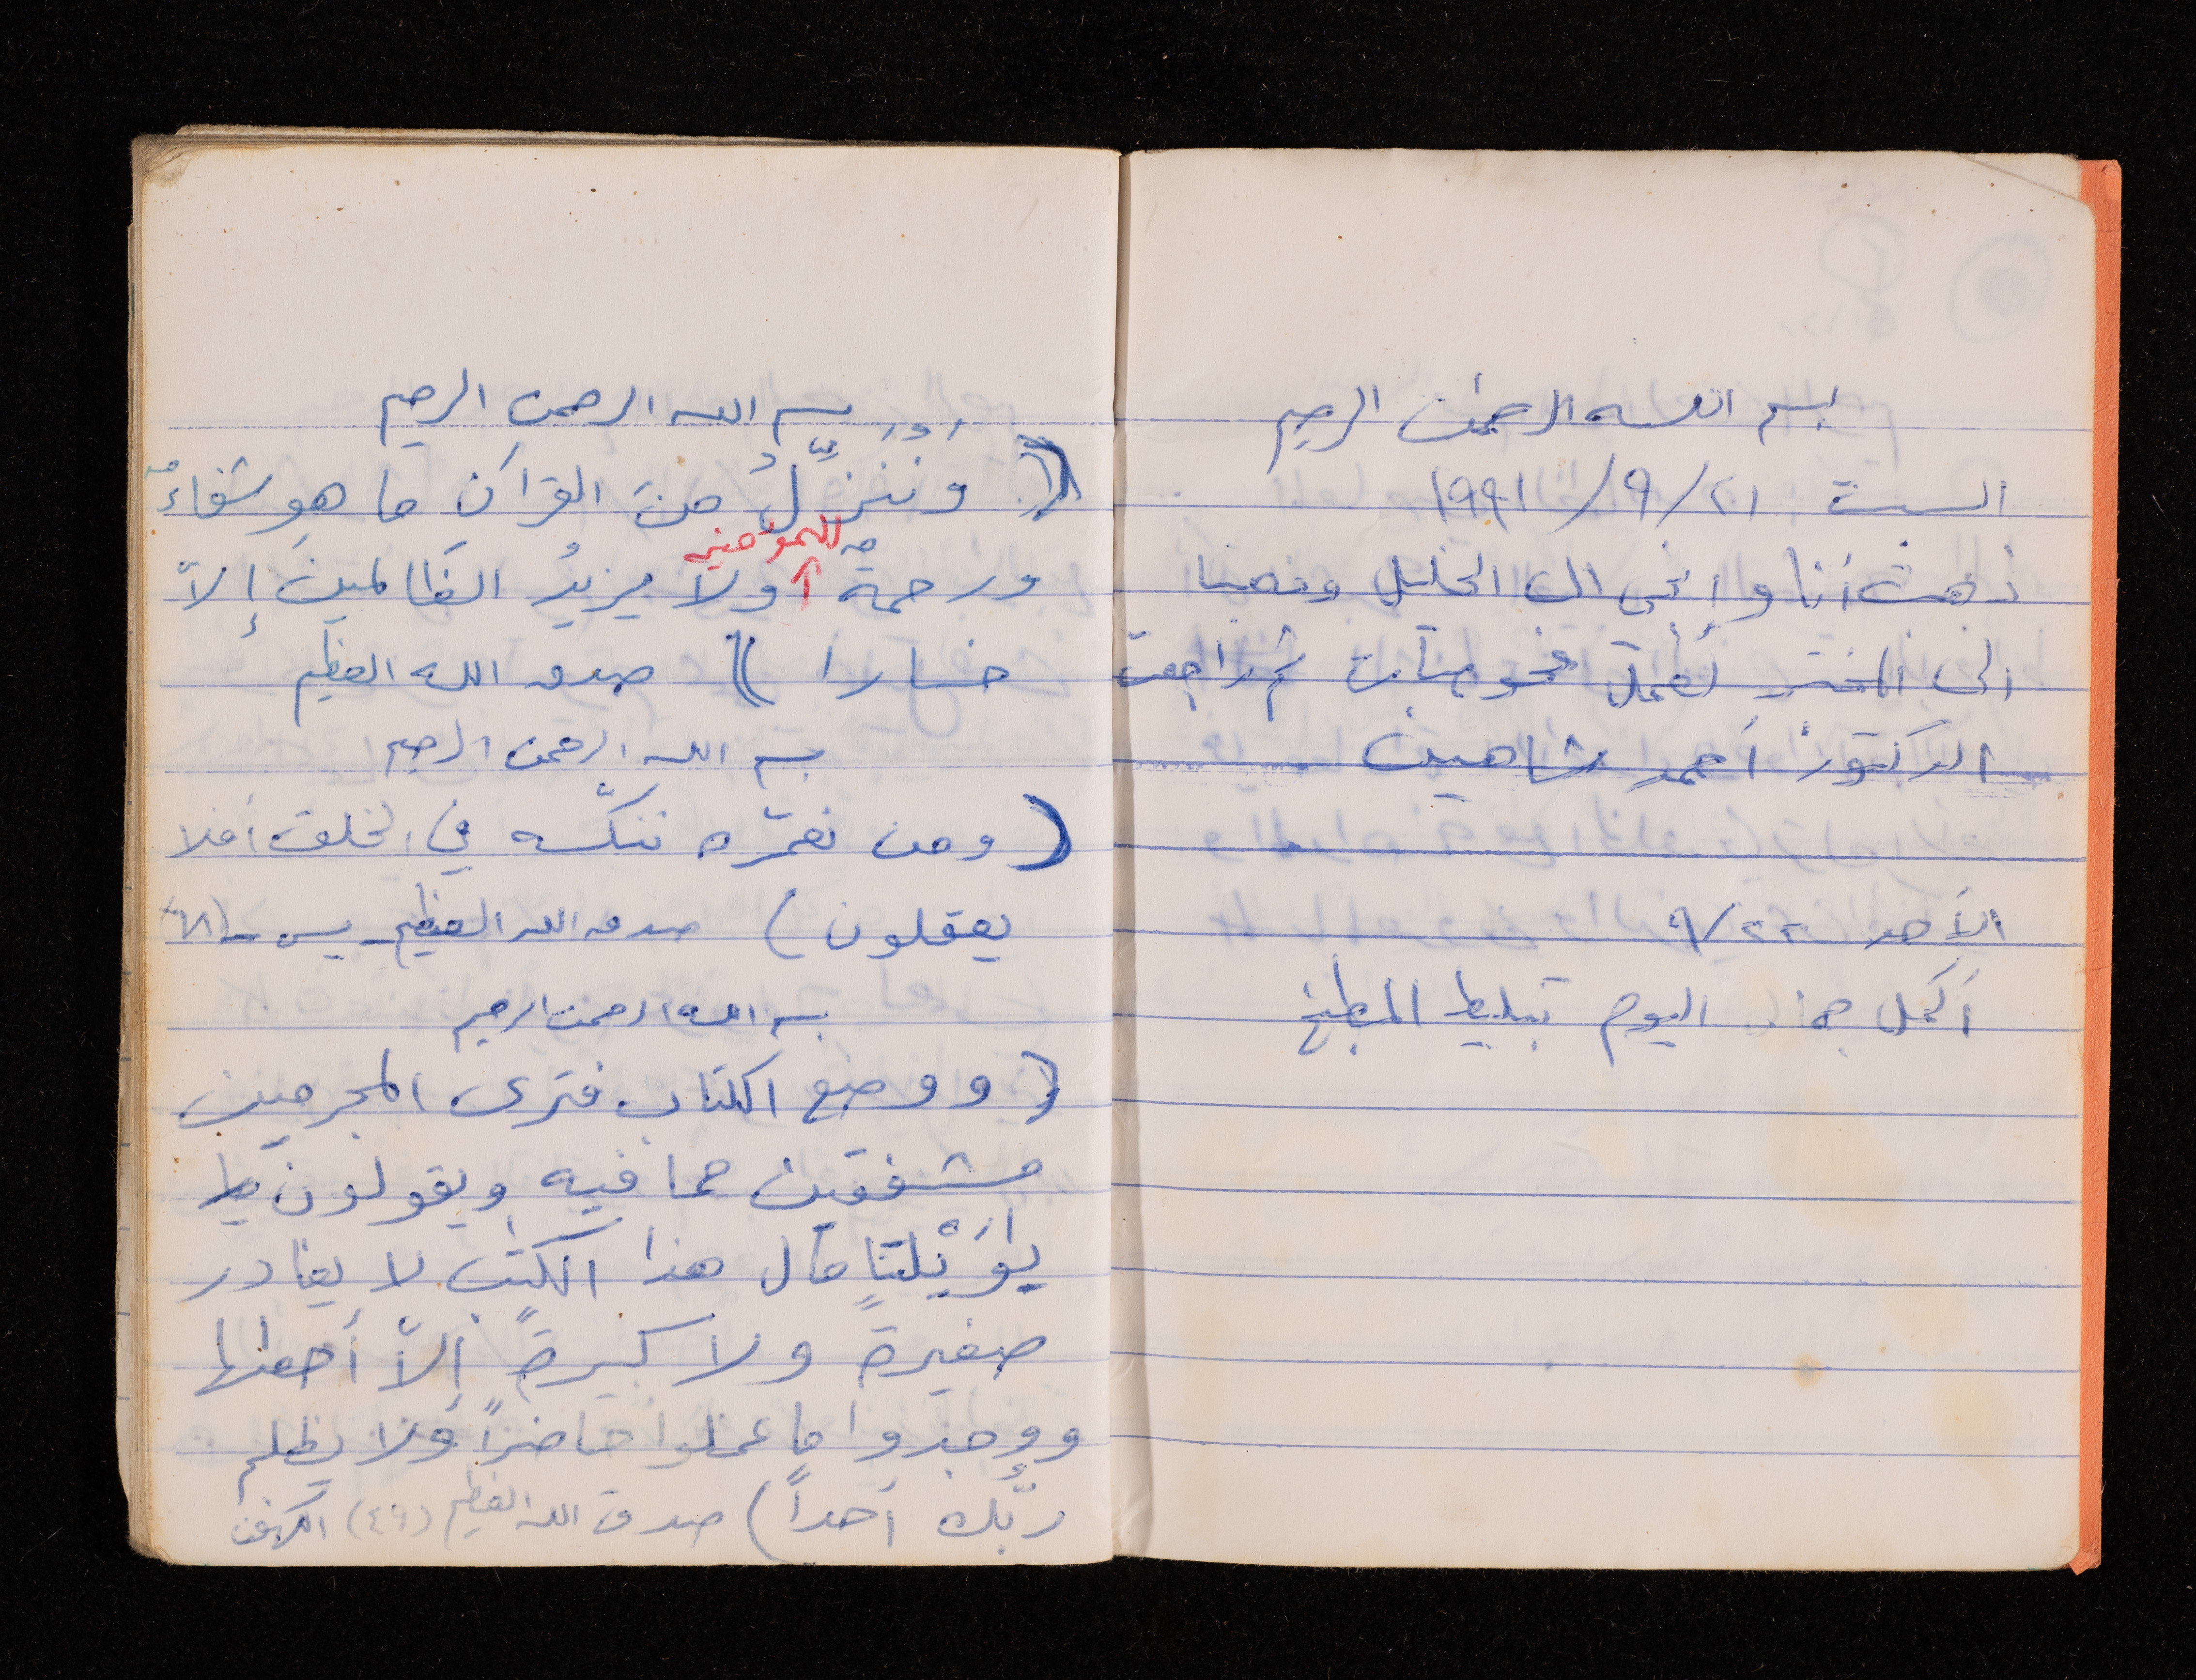 بسم الله الرحمن الرحيم
السبت ٢١/٩/١٩٩١
ذهبت أنا وإبني الى الخليل وذهبنا
الى المختبر لعمل فحوصات ثم راجعت
الدكتور أحمد شاهين
الأحد ٢٢/٩
أكمل اليوم تبليط المطبخ
بسم الله الرحمن الرحيم
(( وننزّلُ من القرآن ما هو شفاءٌ
ورحمةٌ للمؤمنين ولا يزيدُ الظالمين إلاّ
خسارا )) صدق الله العظيم
بسم الله الرحمن الرحيم
( ومن نعمّره ننكّسه في الخلق أفلا
يعقلون ) صدق الله العظيم - يس - (٦٨)
بسم الله الرحمن الرحيم
( ووضع الكتاب فترى المجرمين
مشفقين مما فيه ويقولون
يٰوَيْلتنا مال هذا الكتٰب لا يغادر
صغيرة ولا كبيرةً إلاّ أحصٰها
ووجدوا ما عملوا حاضراً ولا يظلم
ربّك أحداً ) صدق الله العظيم (٤٩) الكهف